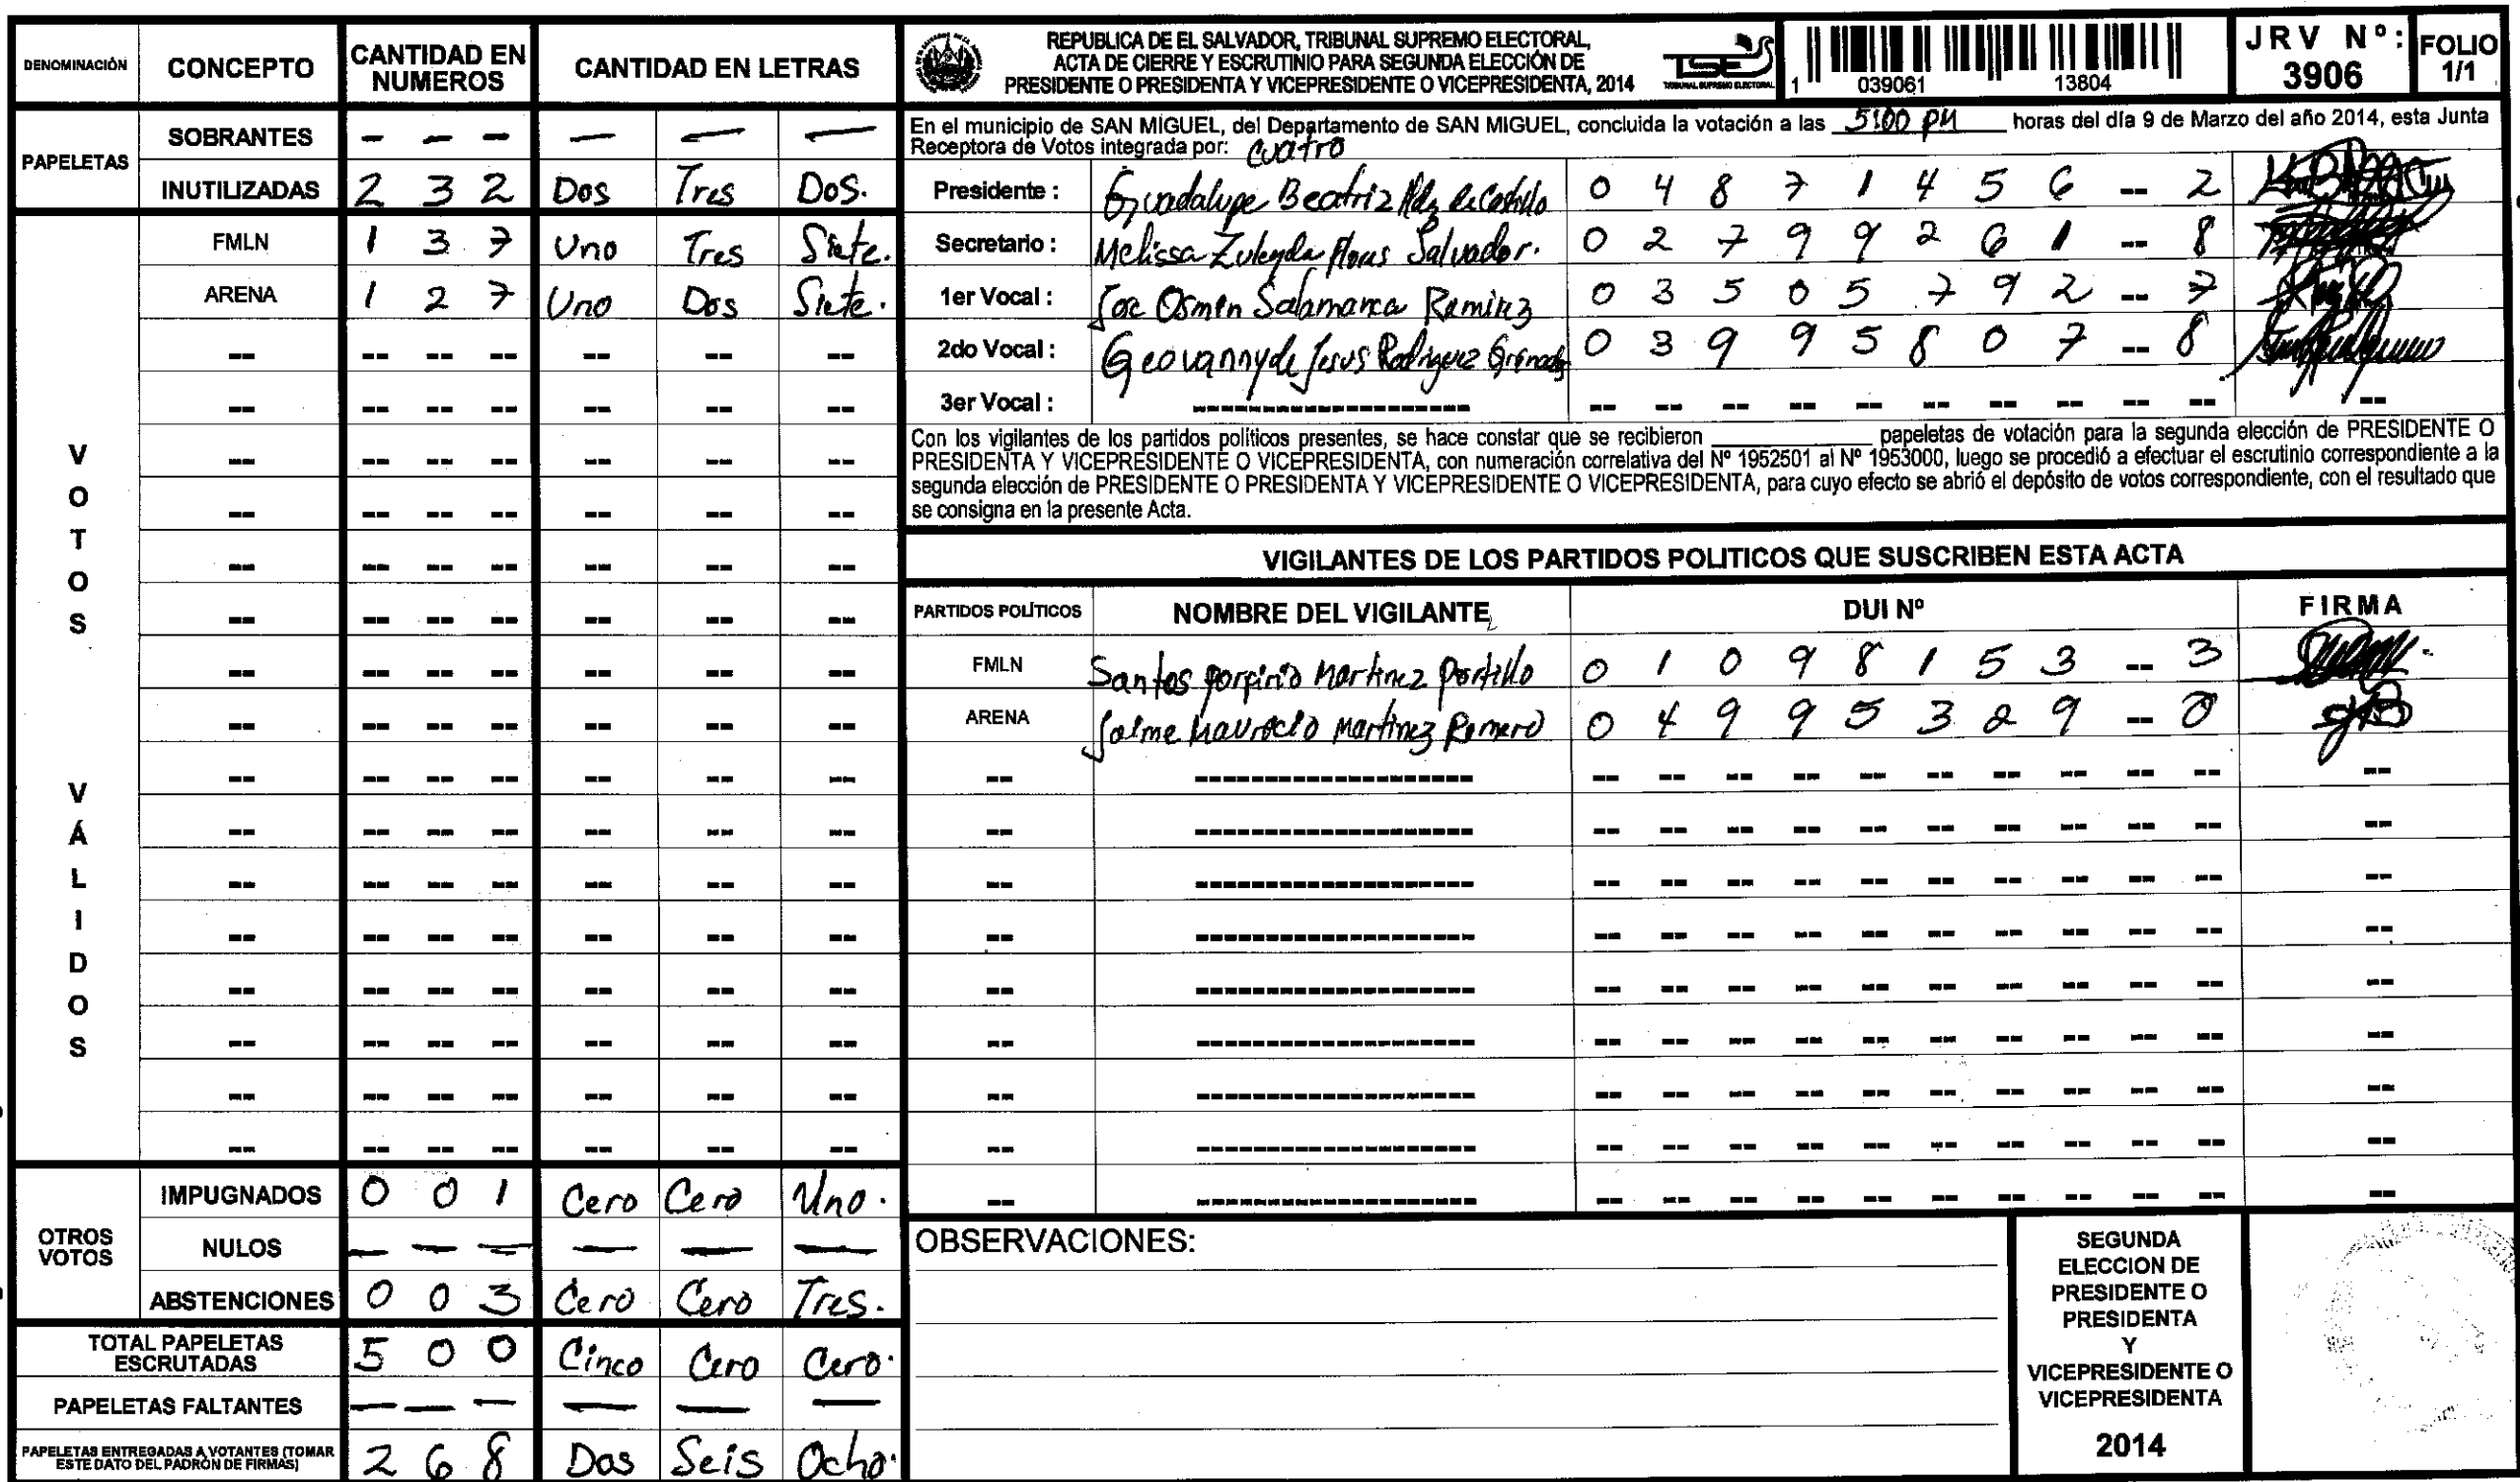 DENOMINACIÓN CONCEPTO CANTIDAD EN NUMEROS CANTIDAD EN LETRAS
PAPELETAS
SOBRANTES - - - — — —
INUTILIZADAS 2 3 2 Dos Tres Dos.
VOTOS VÁLIDOS
FMLN 1 3 7 Uno Tres Siete.
ARENA 1 2 7 Uno Dos Siete.
OTROS VOTOS
IMPUGNADOS 0 0 1 Cero Cero Uno.
NULOS — — — — — —
ABSTENCIONES 0 0 3 Cero Cero Tres.
TOTAL PAPELETAS ESCRUTADAS 5 0 0 Cinco Cero Cero.
PAPELETAS FALTANTES — — — — — —
PAPELETAS ENTREGADAS A VOTANTES (TOMAR ESTE DATO DEL PADRÓN DE FIRMAS) 2 6 8 Dos Seis Ocho.
REPUBLICA DE EL SALVADOR, TRIBUNAL SUPREMO ELECTORAL,
ACTA DE CIERRE Y ESCRUTINIO PARA SEGUNDA ELECCIÓN DE
PRESIDENTE O PRESIDENTA Y VICEPRESIDENTE O VICEPRESIDENTA, 2014
TSE
TRIBUNAL SUPREMO ELECTORAL
1 039061 13804
JRV Nº: 3906
FOLIO 1/1
En el municipio de SAN MIGUEL, del Departamento de SAN MIGUEL, concluida la votación a las 5:00 PM horas del día 9 de Marzo del año 2014, esta Junta
Receptora de Votos integrada por: cuatro
Presidente : Guadalupe Beatriz de Castillo 0 4 8 7 1 4 5 6 -- 2
Secretario : Melissa Zuleyda Salvador. 0 2 7 9 9 2 6 1 -- 8
1er Vocal : Jose Osmin Salamanca Ramirez 0 3 5 0 5 7 9 2 -- 7
2do Vocal : Geovanny de Jesus Rodriguez 0 3 9 9 5 8 0 7 -- 8
3er Vocal :
Con los vigilantes de los partidos políticos presentes, se hace constar que se recibieron ________ papeletas de votación para la segunda elección de PRESIDENTE O
PRESIDENTA Y VICEPRESIDENTE O VICEPRESIDENTA, con numeración correlativa del Nº 1952501 al Nº 1953000, luego se procedió a efectuar el escrutinio correspondiente a la
segunda elección de PRESIDENTE O PRESIDENTA Y VICEPRESIDENTE O VICEPRESIDENTA, para cuyo efecto se abrió el depósito de votos correspondiente, con el resultado que
se consigna en la presente Acta.
VIGILANTES DE LOS PARTIDOS POLITICOS QUE SUSCRIBEN ESTA ACTA
PARTIDOS POLÍTICOS NOMBRE DEL VIGILANTE DUI Nº FIRMA
FMLN Santos Porfirio Martinez Portillo 0 1 0 9 8 1 5 3 -- 3
ARENA Jaime Mauricio Martinez Romero 0 4 9 9 5 3 2 9 -- 0
OBSERVACIONES:
SEGUNDA
ELECCION DE
PRESIDENTE O
PRESIDENTA
Y
VICEPRESIDENTE O
VICEPRESIDENTA
2014